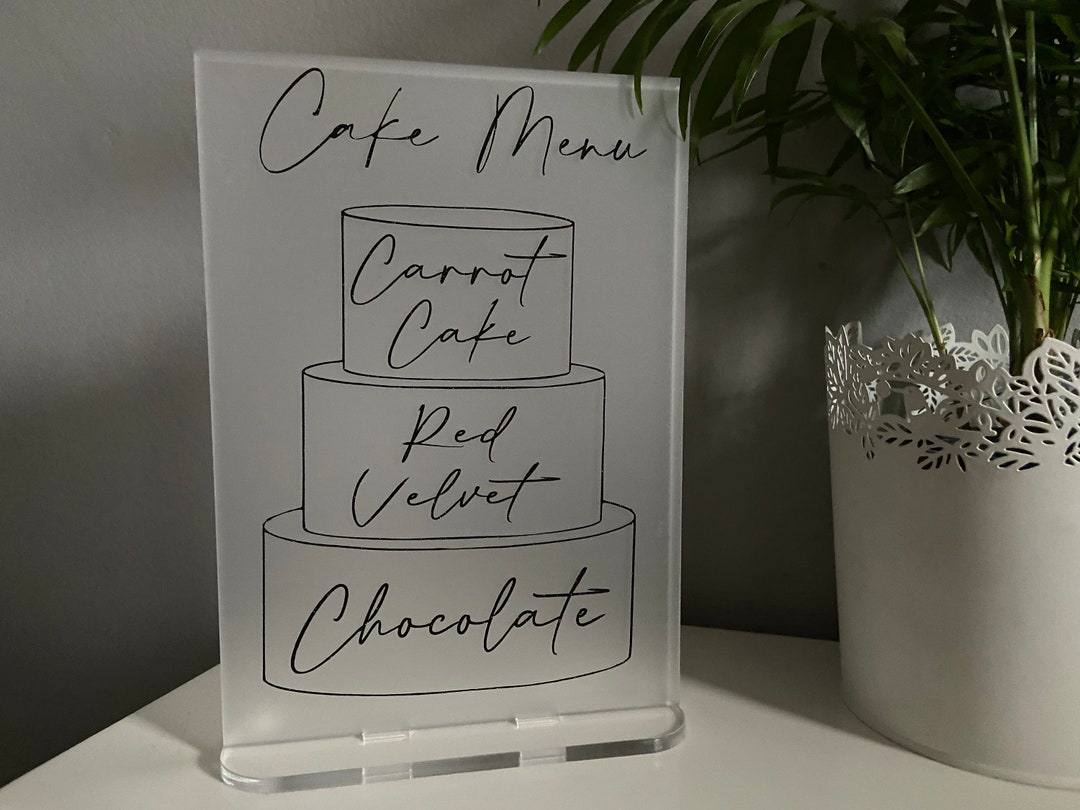 Cake Menu
Carrot
Cake
Red
Velvet
Chocolate